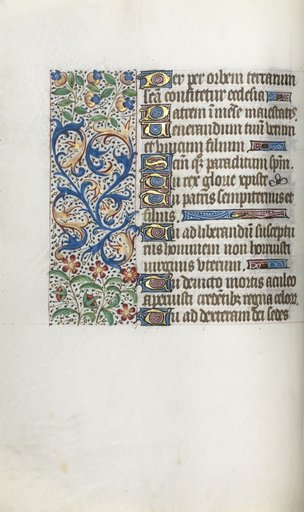 Te per orbem terrarum
sc̄a confitetur ecclesia
Patrem īmēse maiestatis
Venerandum tuū verum
et vnicum filium
Sc̄m q̄ paraclitum sp̄m
Tu rex glorie xp̄iste
Tu patris sempiternus et
filius
Tu ad liberandū susceptu
rus hominem non horruisti
virginis vterum
Tu deuicto mortis aculeo
aperuisti credētib3 regna celorū
Tu ad dexteram dei sedes